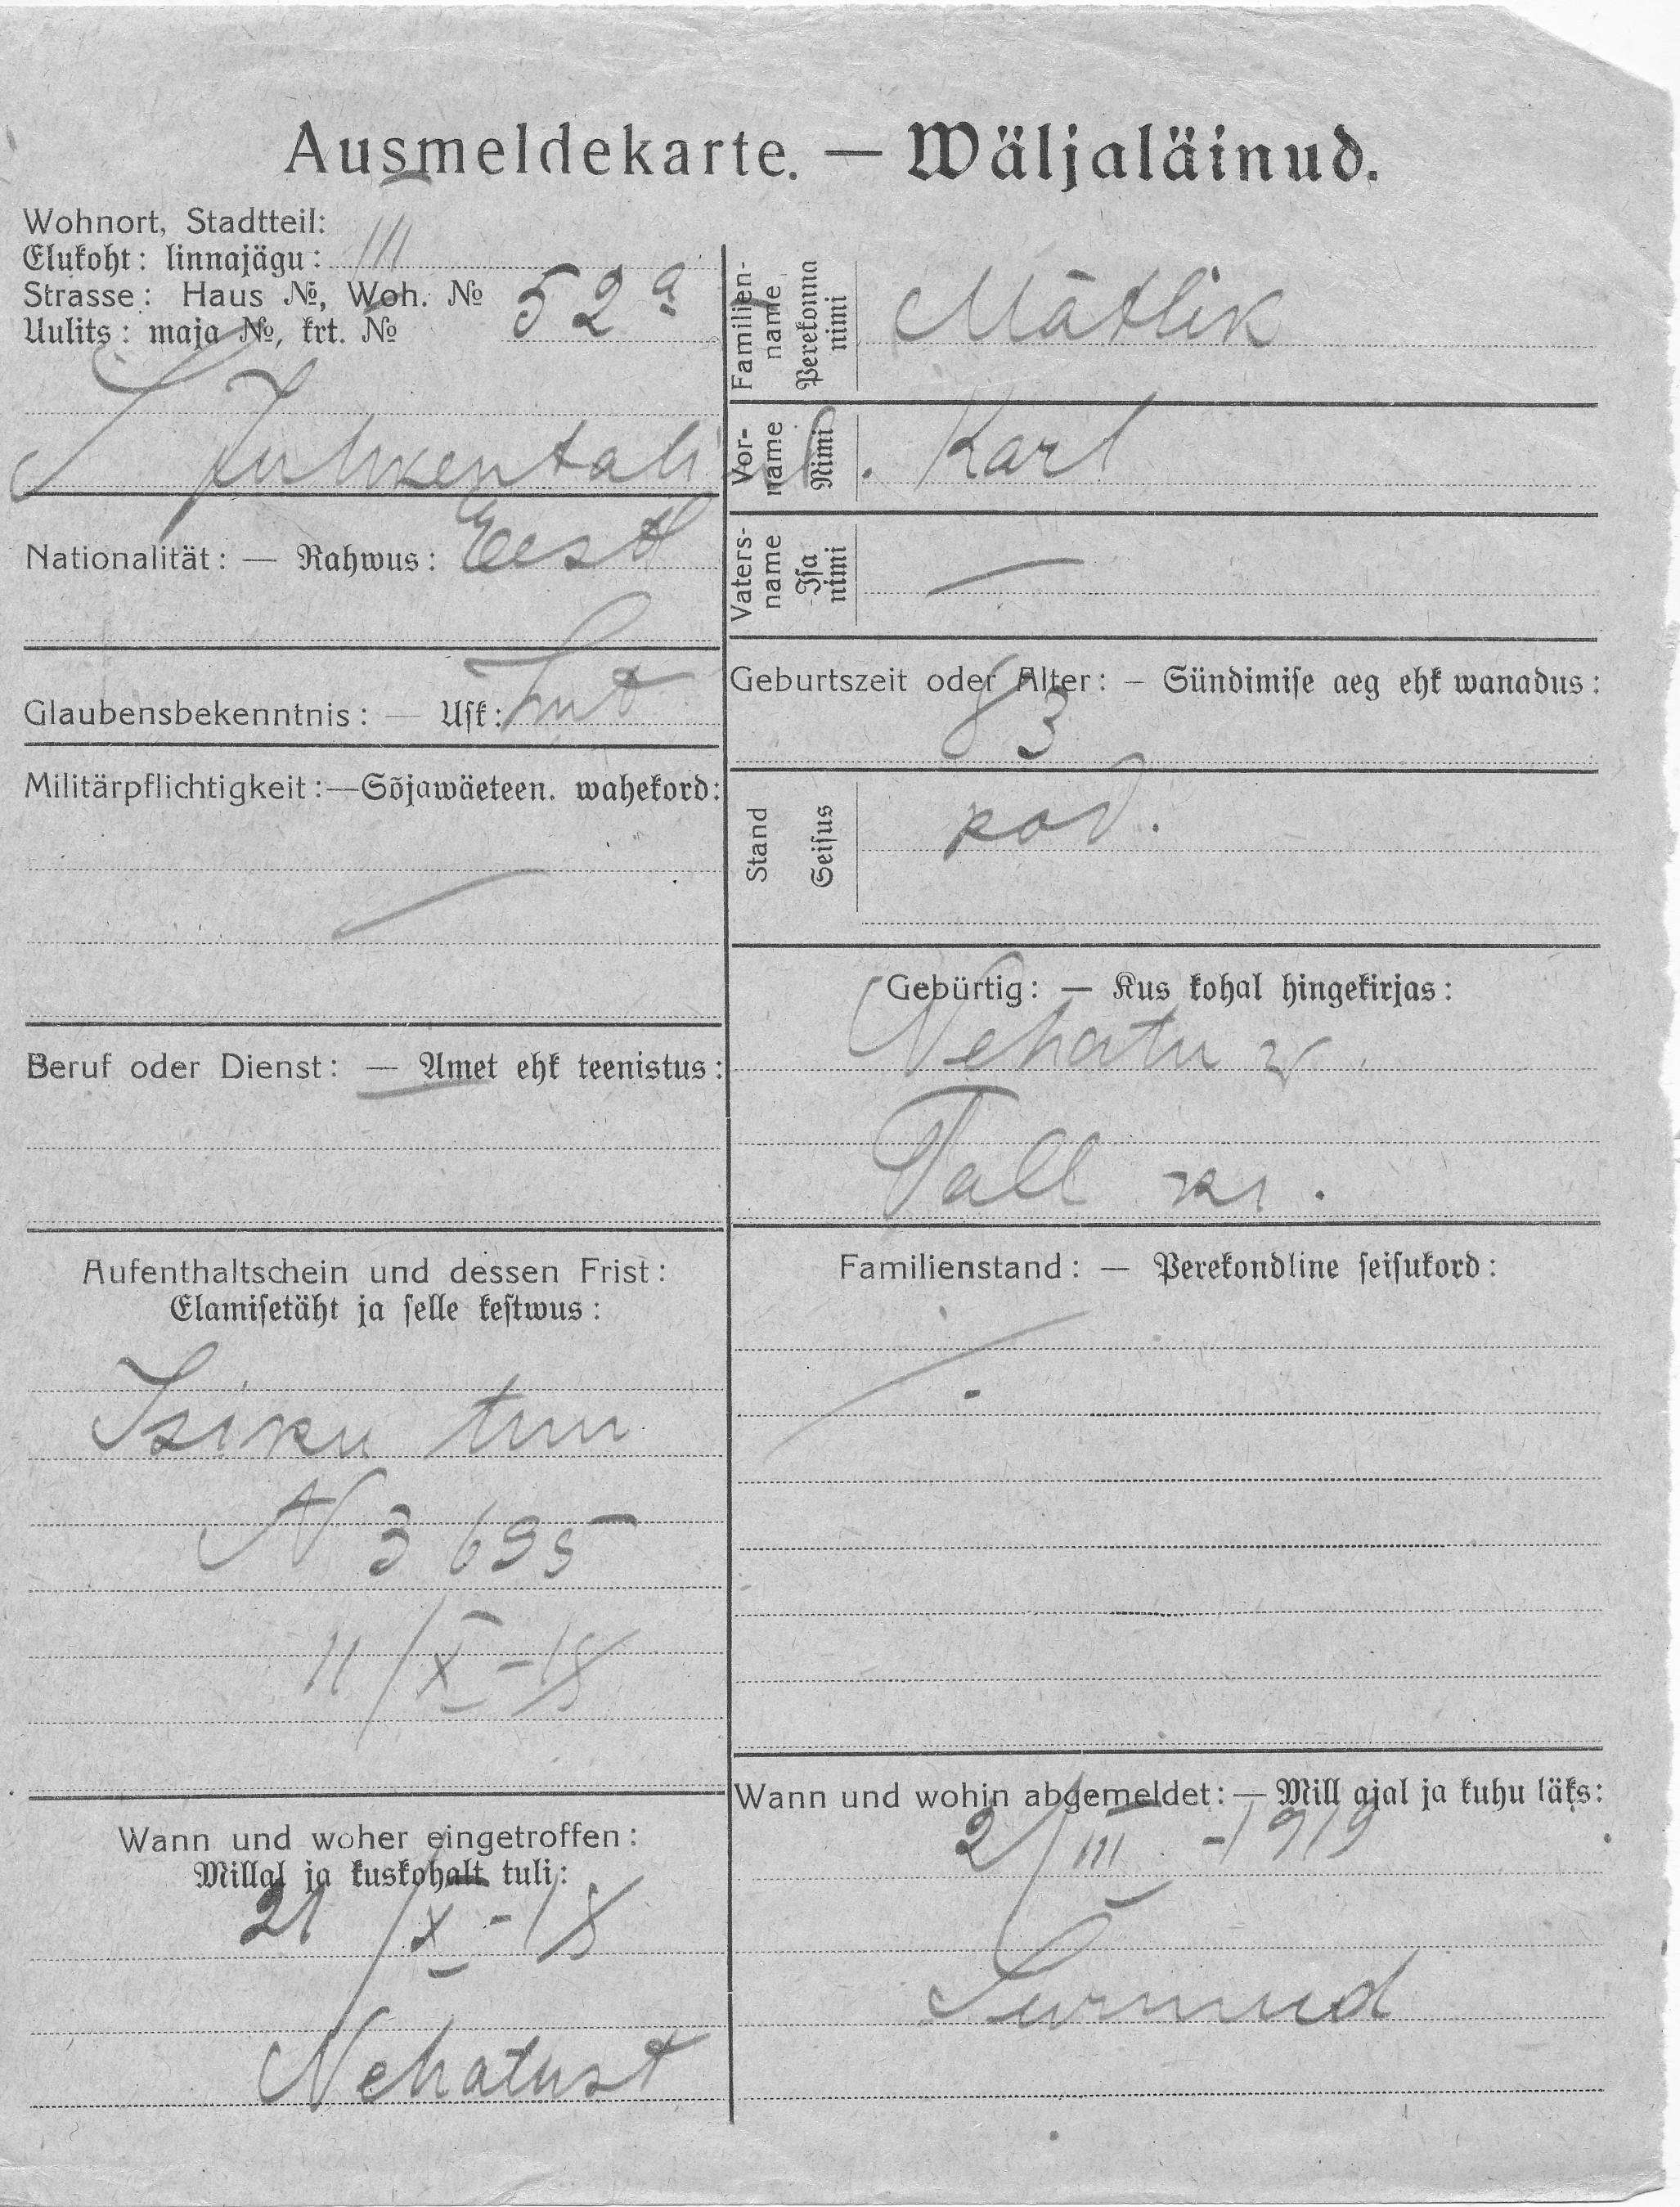 Ausmeldekarte. — Wäljaläinud.
Wohnort, Stadtteil:
Elukoht: linnajägu: III
Strasse: Haus №, Woh. №
Uulits: maja №, krt. № 52 a
S. Juhkentali ul.
Nationalität: — Rahwus: Eestl
Glaubensbekenntnis: — Usk: Lut
Militärpflichtigkeit: — Sõjawäeteen. wahekord:
—
Beruf oder Dienst: — Amet ehk teenistus:
—
Aufenthaltschein und dessen Frist:
Elamisetäht ja selle kestwus:
Isiku tun
N 3695
11/X – 18
Wann und woher eingetroffen:
Millal ja kuskohalt tuli:
21/X – 18
Nehatust
Familien-
name
Perekonna
nimi
Mätlik
Vor-
name
Nimi
Karl
Vaters-
name
Isa
nimi
—
Geburtszeit oder Alter: – Sündimise aeg ehk wanadus:
83
Stand
Seisus
kod.
Gebürtig: — Kus kohal hingekirjas:
Nehatu v.
Tall kr.
Familienstand: — Perekondline seisukord:
Wann und wohin abgemeldet: — Mill ajal ja kuhu läks:
2/III – 1919
Surnud